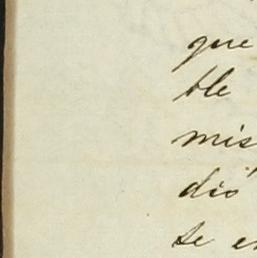 que
ble
mis
dió
se en